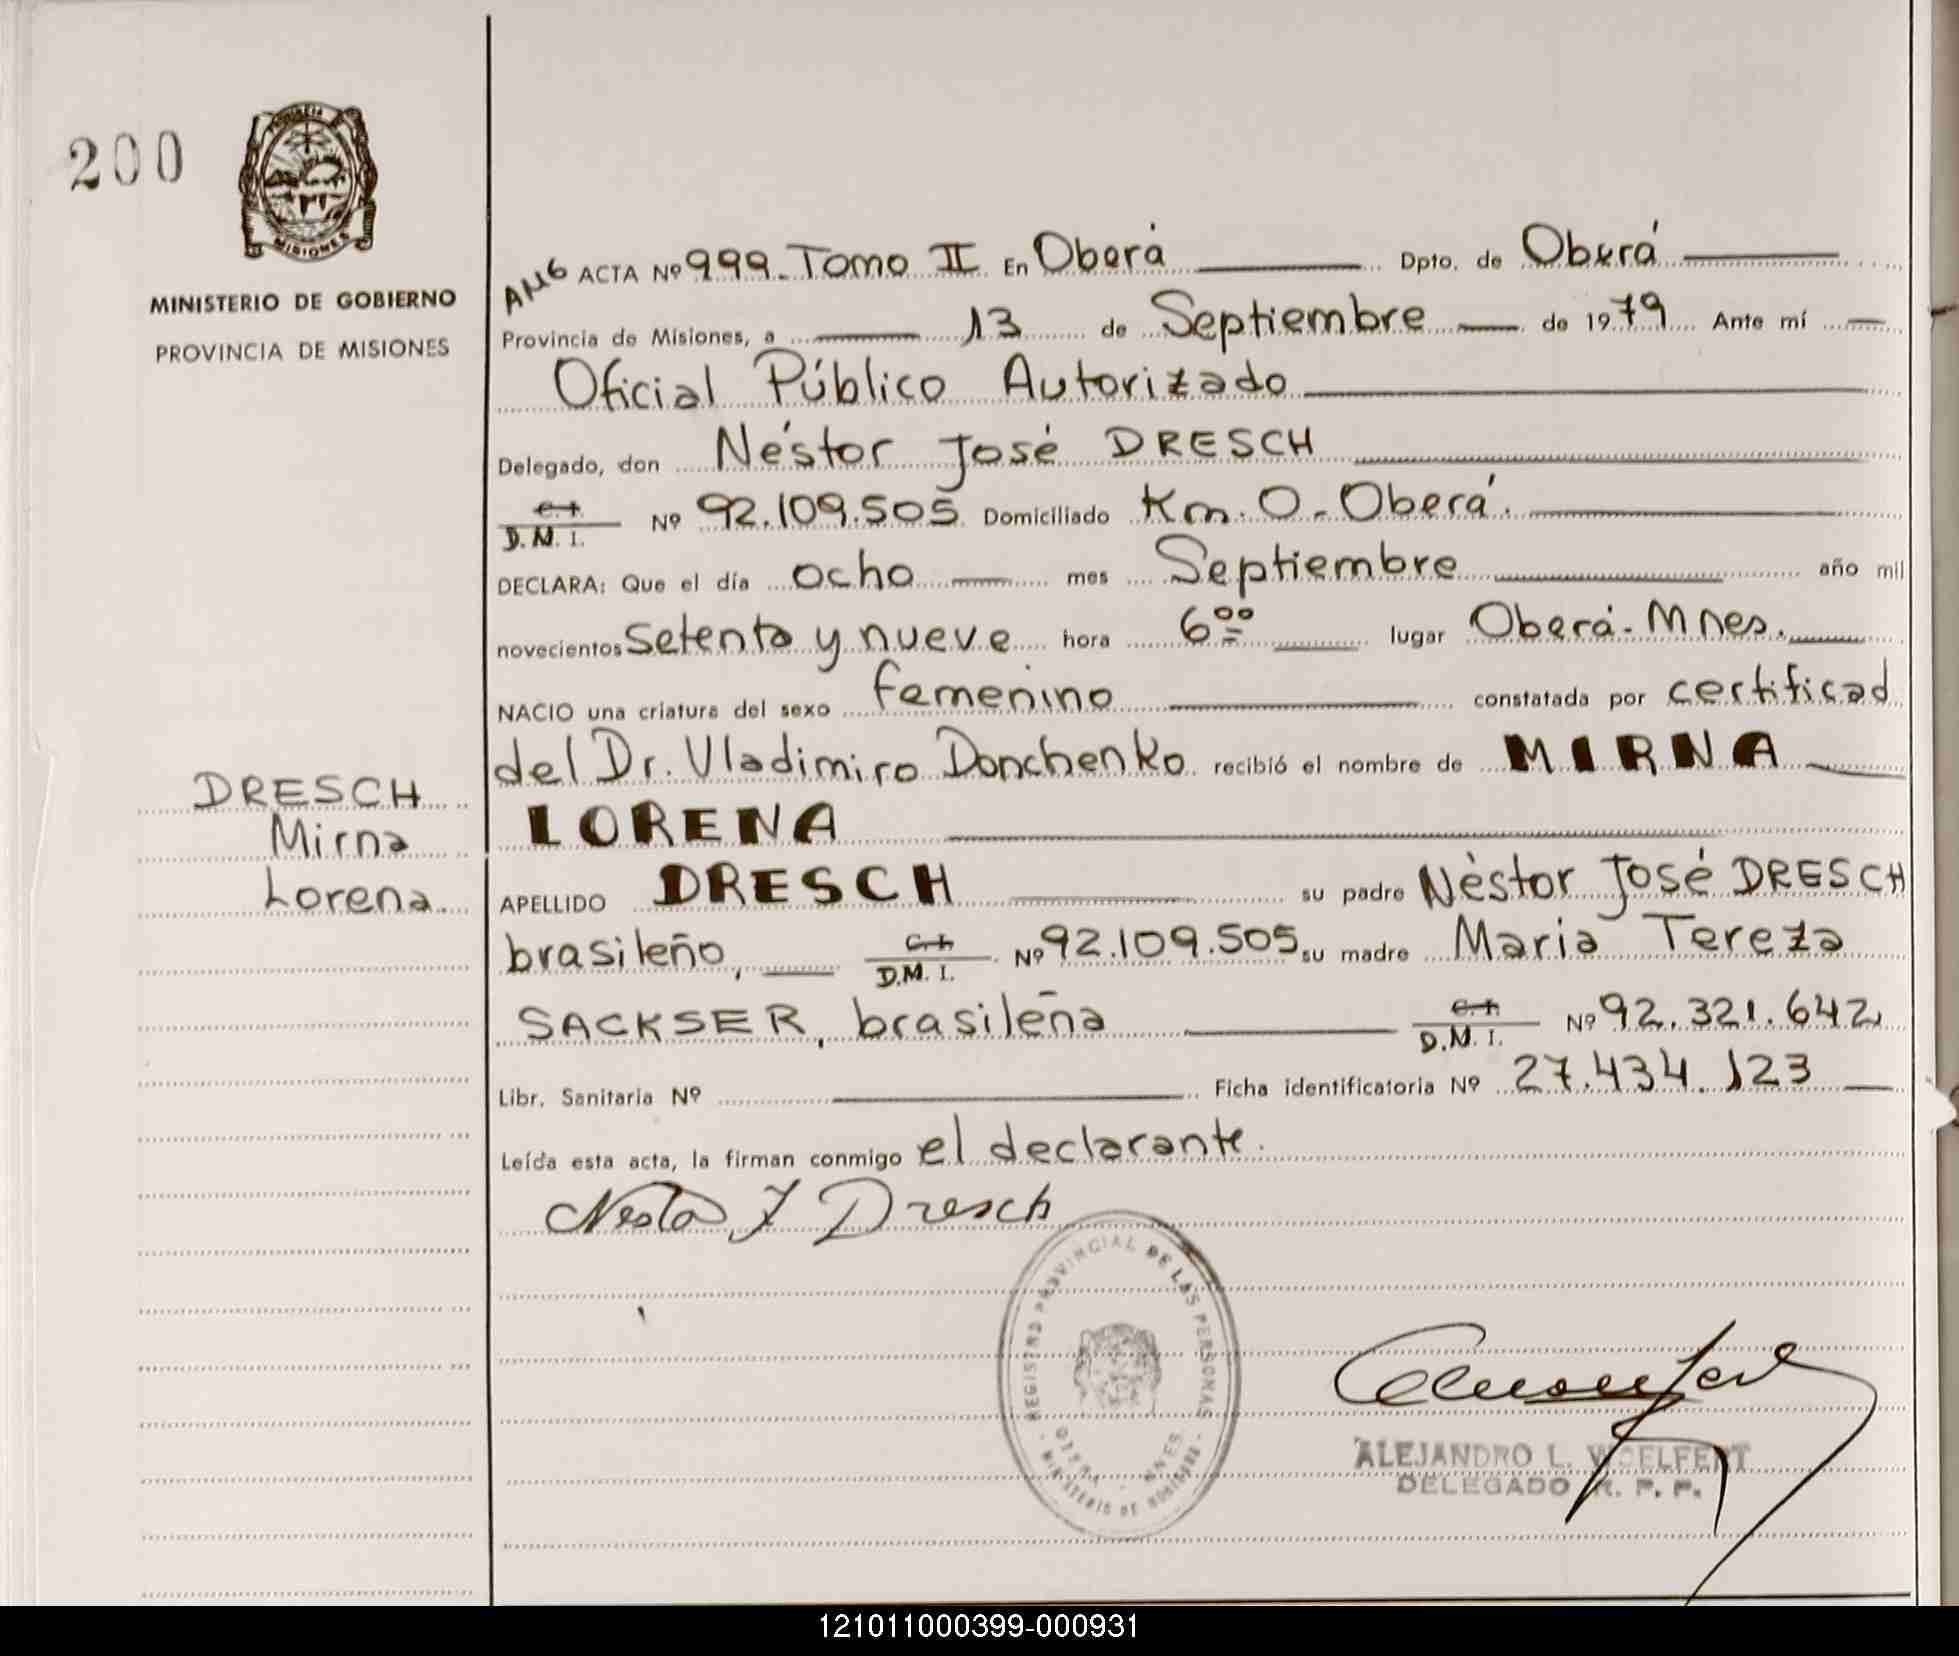 200
PROVINCIA
MISIONES
MINISTERIO DE GOBIERNO
PROVINCIA DE MISIONES
DRESCH
Mirna
Lorena
AMG ACTA Nº 999. Tomo II En Oberá Dpto. de Oberá
Provincia de Misiones, a 13 de Septiembre de 1979 Ante mí
Oficial Público Autorizado
Delegado, don Néstor José DRESCH
C.I. D.M.I. Nº 92.109.505 Domiciliado Km. 0 - Oberá.
DECLARA: Que el día ocho mes Septiembre año mil
novecientos Setenta y nueve hora 6 00 lugar Oberá - Mnes.
NACIO una criatura del sexo femenino constatada por certificad
del Dr. Vladimiro Donchenko recibió el nombre de MIRNA
LORENA
APELLIDO DRESCH su padre Nèstor José DRESCH
brasileño, C.I. D.M.I. Nº 92.109.505 su madre Maria Tereza
SACKSER, brasileña C.I. D.M.I. Nº 92.321.642
Libr. Sanitaria Nº Ficha identificatoria Nº 27.434.123
Leída esta acta, la firman conmigo el declarante.
Nestor J Dresch
REGISTRO PROVINCIAL DE LAS PERSONAS
MINISTERIO DE GOBIERNO
OBERA - MNES.
ALEJANDRO L. WOELFERT
DELEGADO R. P. P.
121011000399-000931